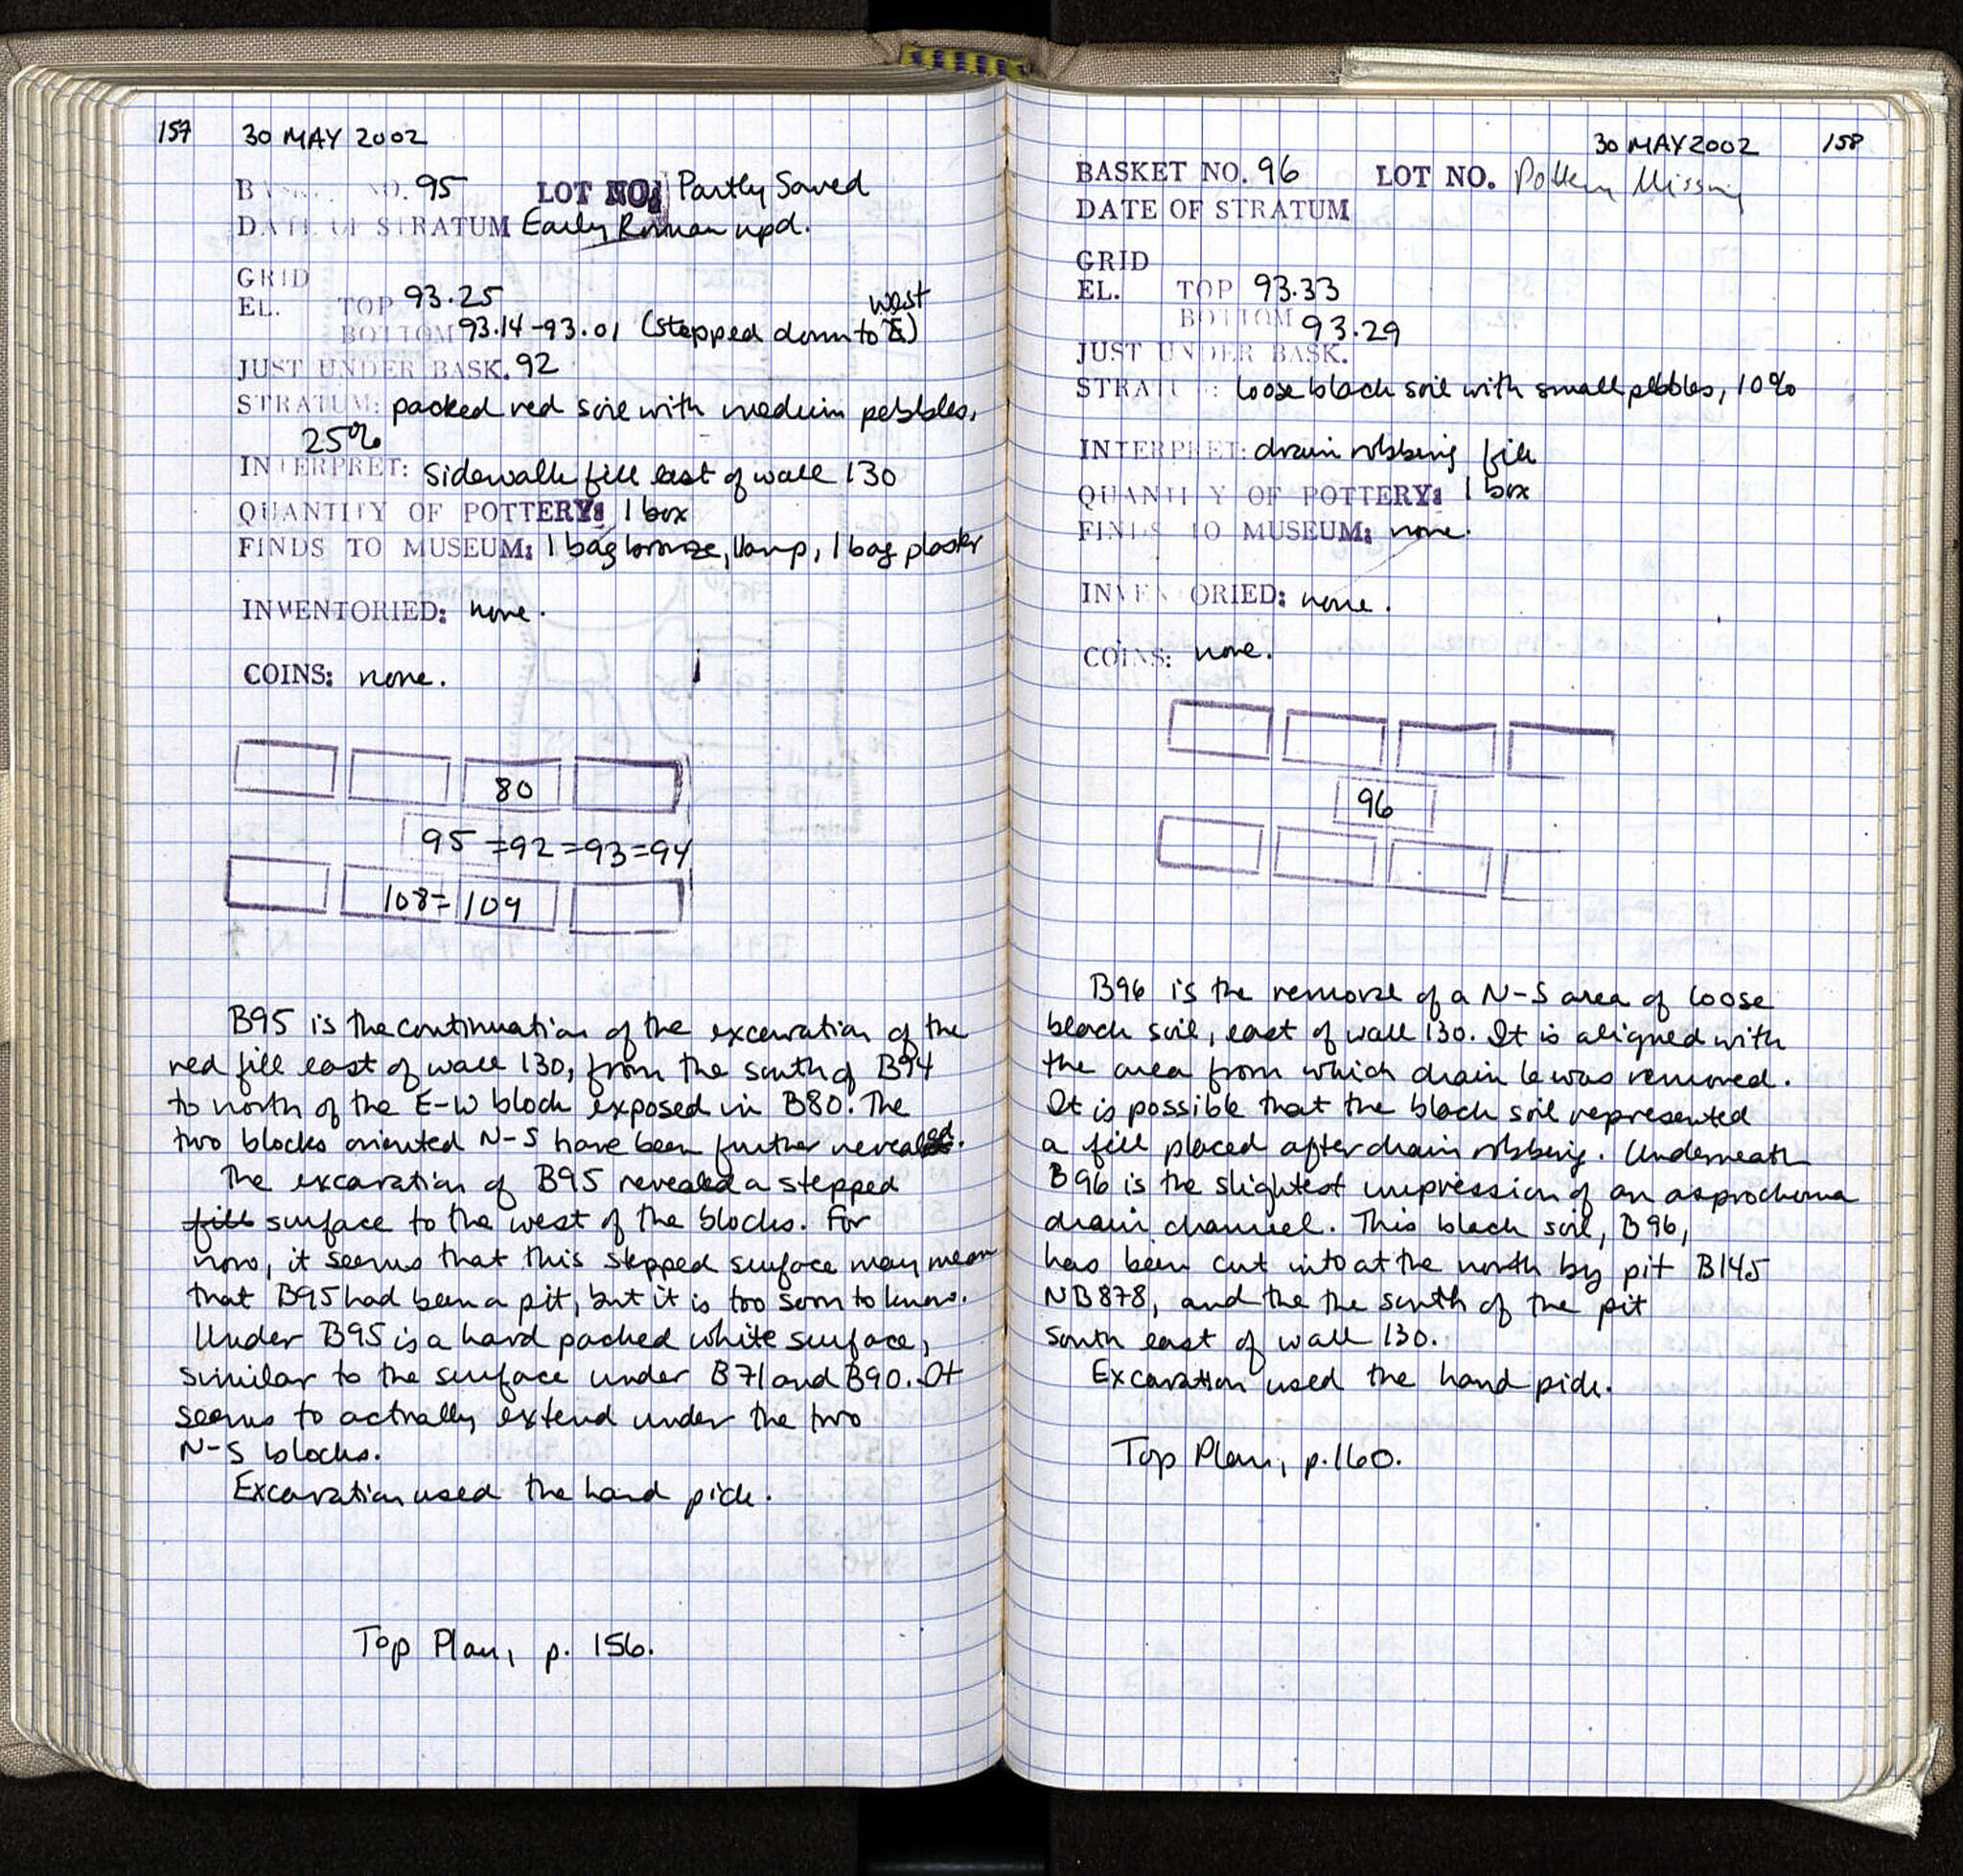 157 30 MAY 2002
BASKET NO. 95 LOT NO. Partly Saved
DATE OF STRATUM Early Roman npd.
GRID
EL. TOP 93.25
west
BOTTOM 93.14-93.01 (stepped down to E)
JUST UNDER BASK. 92
STRATUM: packed red soil with medium pebbles,
25%
INTERPRET: Sidewalk fill east of wall 130
QUANTITY OF POTTERY: 1 box
FINDS TO MUSEUM: 1 bag bronze, 1 lamp, 1 bag plaster
INVENTORIED: none.
COINS: none.
80
95 =92=93=94
108= 109
B95 is the continuation of the excavation of the
red fill east of wall 130, from the south of B94
to north of the E-W block exposed in B80. The
two blocks oriented N-S have been further revealed.
The excavation of B95 revealed a stepped
fill surface to the west of the blocks. For
now, it seems that this stepped surface may mean
that B95 had been a pit, but it is too soon to know.
Under B95 is a hard packed white surface,
similar to the surface under B71 and B90. It
seems to actually extend under the two
N-S blocks.
Excavation used the hand pick.
Top Plan, p. 156.
30 MAY 2002 158
BASKET NO. 96 LOT NO. Pottery Missing
DATE OF STRATUM
GRID
EL. TOP 93.33
BOTTOM 93.29
JUST UNDER BASK.
STRATUM: loose black soil with small pebbles, 10%
INTERPRET: drain robbing fill
QUANTITY OF POTTERY: 1 box
FINDS TO MUSEUM: none.
INVENTORIED: none.
COINS: none.
96
B96 is the removal of a N-S area of loose
black soil, east of wall 130. It is aligned with
the area from which drain 6 was removed.
It is possible that the black soil represented
a fill placed after drain robbing. Underneath
B96 is the slightest impression of an asprochoma
drain channel. This black soil, B96,
has been cut into at the north by pit B145
NB878, and the the south of the pit
south east of wall 130.
Excavation used the hand pick.
Top Plan, p.160.